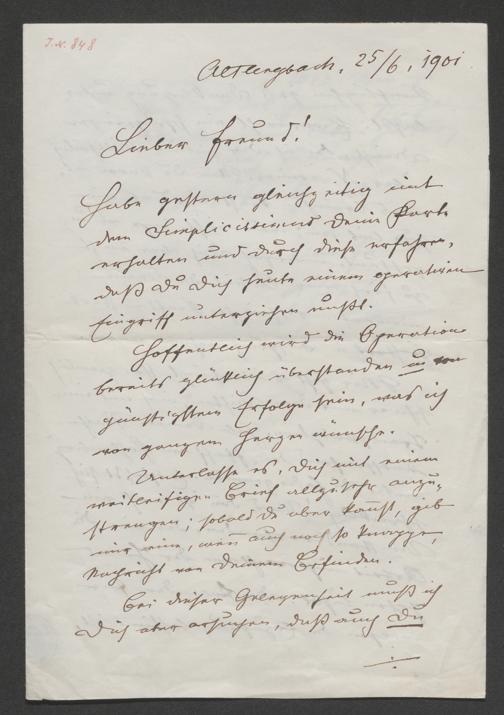 I.N. 848
Altlengbach, 25/6, 1901
Lieber Freund!
Habe gestern gleichzeitig mit
dem Simplicissimus Deine Karte
erhalten und durch diese erfahren,
daß Du Dich heute einem operativen
Eingriff unterziehen mußt.
Hoffentlich wird die Operation
bereits glücklich überstanden u von
günstigstem Erfolge sein, was ich
von ganzem Herzen wünsche.
Unterlasse es, Dich mit einem
weitleifigen Brief allzusehr anzu-
strengen; sobald Du aber kannst, gib
mir eine, wenn auch noch so knappe,
Nachricht von Deinem Befinden.
Bei dieser Gelegenheit muß ich
Dich aber ersuchen, daß auch Du